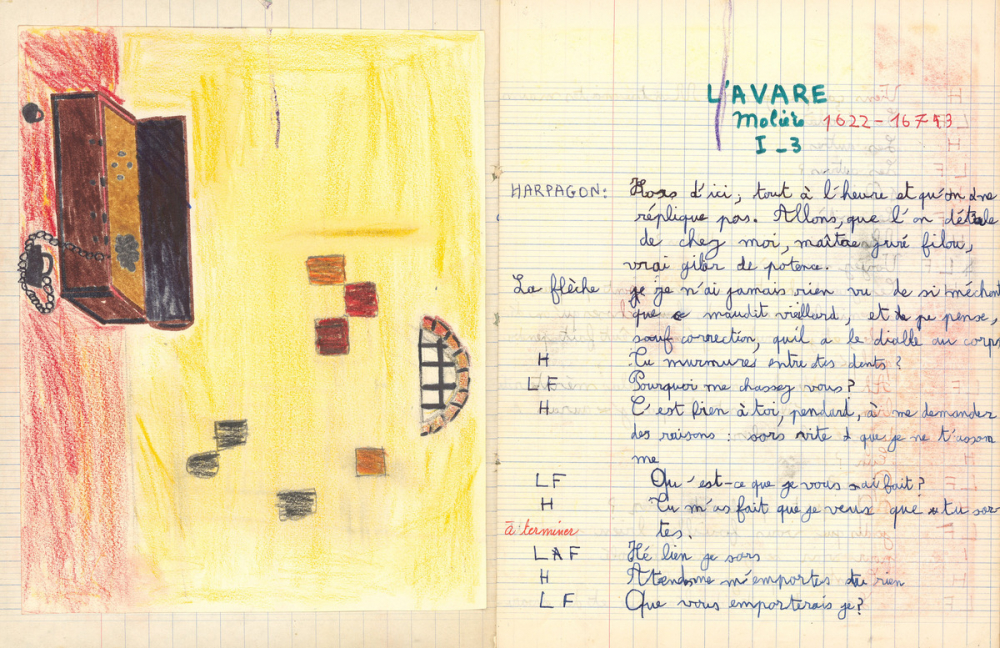 L'AVARE
Molière 1622-1673
I_3
HARPAGON: Hors d'ici, tout à l'heure et qu'on ne
réplique pas. Allons, que l'on détale
de chez moi, maître juré filou,
vrai gibier de potence.
La flèche je n'ai jamais rien vu de si méchant
que ce maudit vieillard, et je pense,
sauf correction, qu'il a le diable au corps
H Tu murmures entre tes dents ?
LF Pourquoi me chassez vous ?
H C'est bien à toi, pendard, à me demander
des raisons : sors vite que je ne t'assom
me
LF Qu'est-ce que je vous ai fait ?
H Tu m'as fait que je veux que tu sor
à terminer tes.
LAF Hé bien je sors
H Attends me m'emportes tu rien
LF Que vous emporterais je ?